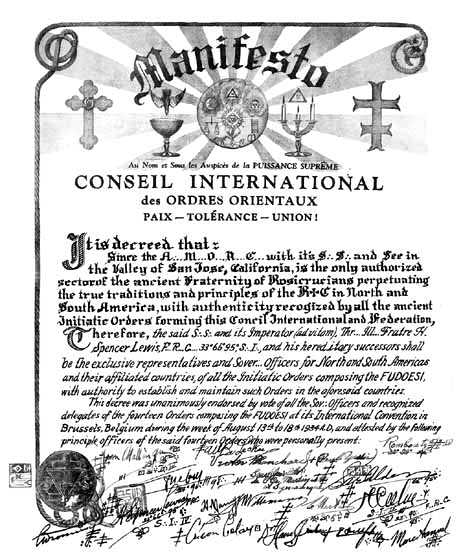 Manifesto
Au Nom et Sous les Auspices de la PUISSANCE SUPRÊME
CONSEIL INTERNATIONAL
des ORDRES ORIENTAUX
PAIX — TOLÉRANCE — UNION!
It is decreed that:
Since the A... M... O... R... C... with its S∴ S∴ and See in
the Valley of San Jose, California, is the only authorized
sector of the ancient Fraternity of Rosicrucians perpetuating
the true traditions and principles of the R+C in North and
South America, with authenticity recogized by all the ancient
Initiatic Orders forming this Concil International and Federation,
Therefore, the said S∴ S∴ and its Imperator (ad vitam), Thr... Ill... Fratre H.
Spencer Lewis, F.R.C... 33°66°95°; S∴ I., and his hereditary successors shall
be the exclusive representatives and Sover... Officers for North and South Americas
and their affiliated countries, of all the Initiatic Orders composing the FUDOESI,
with authority to establish and maintain such Orders in the aforesaid countries.
This decree was unanimously endorsed by vote of all the Sov: Officers and recognized
delegates of the fourteen Orders composing the FUDOESI at its International Convention in
Brussels, Belgium during the week of August 13th to 18th 1934 A.D, and attested by the following
principle officers of the said fourteen Orders who were personally present: